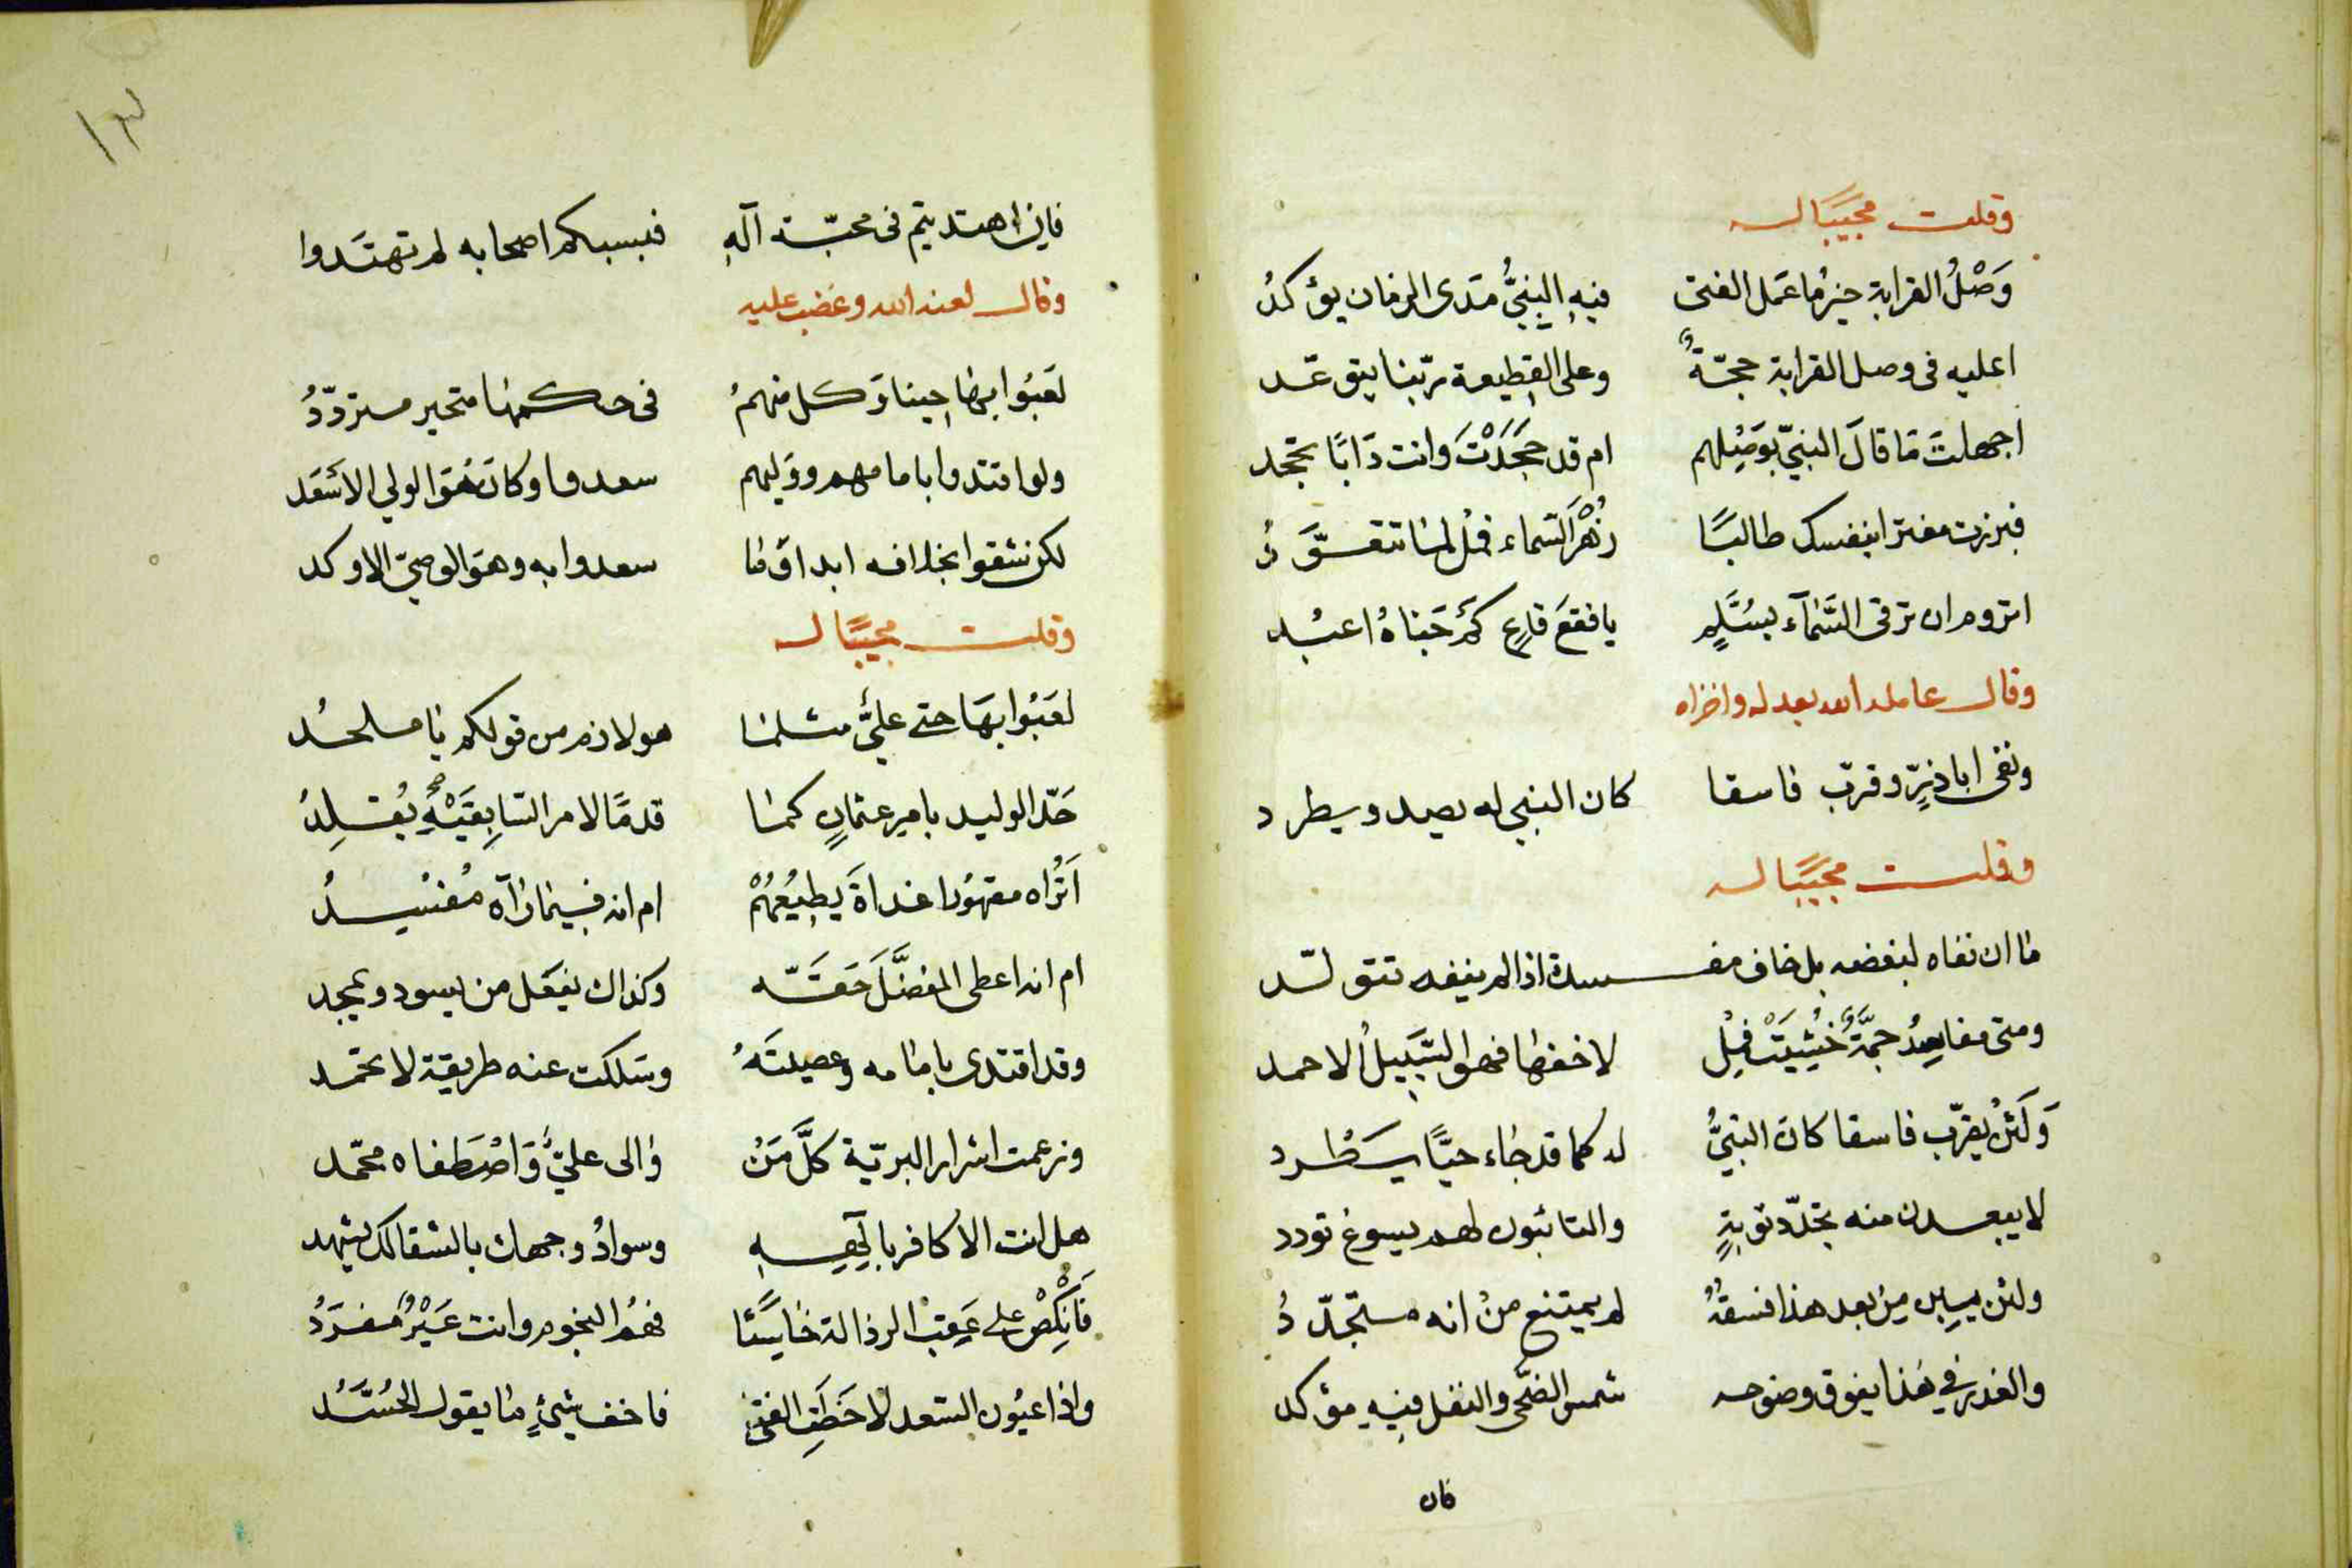 وقلت مجيبًا له
وَصْلُ القرابة خيرُ ما عمَل الفتى فيهِ النبيُّ مَدى الزمان يؤكدُ
اعليه فى وصل القرابة حجّةٌ وعلى القطيعة ربّنا يتوعّد
اجهلتَ مَا قالَ النبيّ بوَصْلِهم ام قد جَحَدْتَ وانت دَابًا تجحد
فبرزت مغترا بنفسك طالبًا زُهْرَ السّماء فمُل لمنا تقصّدُ
اتروم ان ترقى السَّمآء بسُلَّمٍ يا فقعَ قاعٍ كَمْ حَبَاهُ اعبُد
وقال عامله الله بعدله واخزاه
ونفى اباذرٍّ وقرّب فاسقا كان النبي له يصد ويطرد
وقلت مجيبًا له
ما ان نفاه لبغضه بل خاف مفسدة اذا لم ينفه تتولّد
ومتى مفاسِدُ جمَّةٌ خُشِيَتْ فمِلْ لاخفها فهو السَّبيلُ الاحمد
وَلَئنْ يقرّب فاسقا كانَ النبيُّ له كما قد جاء حيًّا يَطْرد
لا يبعدن منه تجدّد توبةٍ والتائبون لهم يسوغ تودد
ولئن يبِن مِن بعد هذا فسقهُ لم يمتنع منْ انه متجدّدُ
والعذر في هٰذا يفوق وضوحه شمس الضّحى والنقل فيهِ مؤكد
فان
١٣
فاِن اهتديتم فى محبّة آلهِ فبسبكم اصحابه لم تهتَدوا
وقال لعنه الله وغضب عليه
لعَبُوا بها حينا وَكل منهمُ فى حكمها متحير متردّدُ
ولو اقتدوا بامامهم ووَليهم سعدوا وكانَ هُوَ الولي الاسْعَد
لكن شقوا بخلافه ابدا وَما سعدوا به وهوَ الوصيّ الاوكد
وقلت مجيبًا له
لعَبُوا بهَا حتى عليٌّ مثلما هو لازم من قولكم يا ملحدُ
حَدّ الوليد بامر عثمانٍ كما قدمًا لامر السّابِقَيْهِ يُقلِدُ
اَتُراه مقهُورا غداةَ يطِيْعُهُمْ ام انه فيما رَآه مُفنيدُ
ام انه اعطى المفضَّلَ حَقّه وكذاك يفعَل من يسود ويمجد
وقد اقتدى بامامه وعصيتَهُ وسَلكت عنه طريقة لا تحمد
وزعمت اشرار البريّة كلَّ مَنْ والى عليّ وَاصْطَفاه محمّد
هل انت الا كافر بالٰهِه وسوادُ وجهك بالشقا لك يشهد
فَانكِصْ على عَقِبْ الرذالة خاسئًا فهُمُ النجوم وانت عَيْرٌ مفرَدُ
واذا عيُون السّعد لاحَظَتِ الفتىٰ ما خف شيئٍ ما يقول الحُسَّدُ